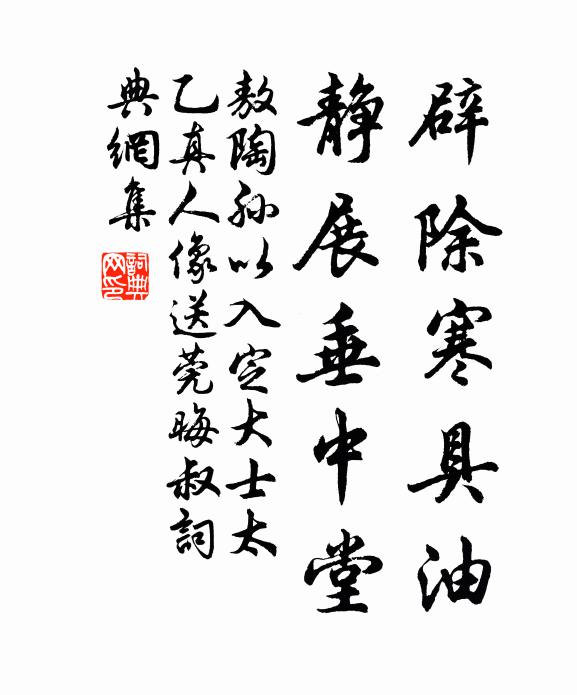 辟除寒具油
静展垂中堂
敖陶孙以入定大士太
乙真人像送莞晦叔詞
典網集
詞典网印